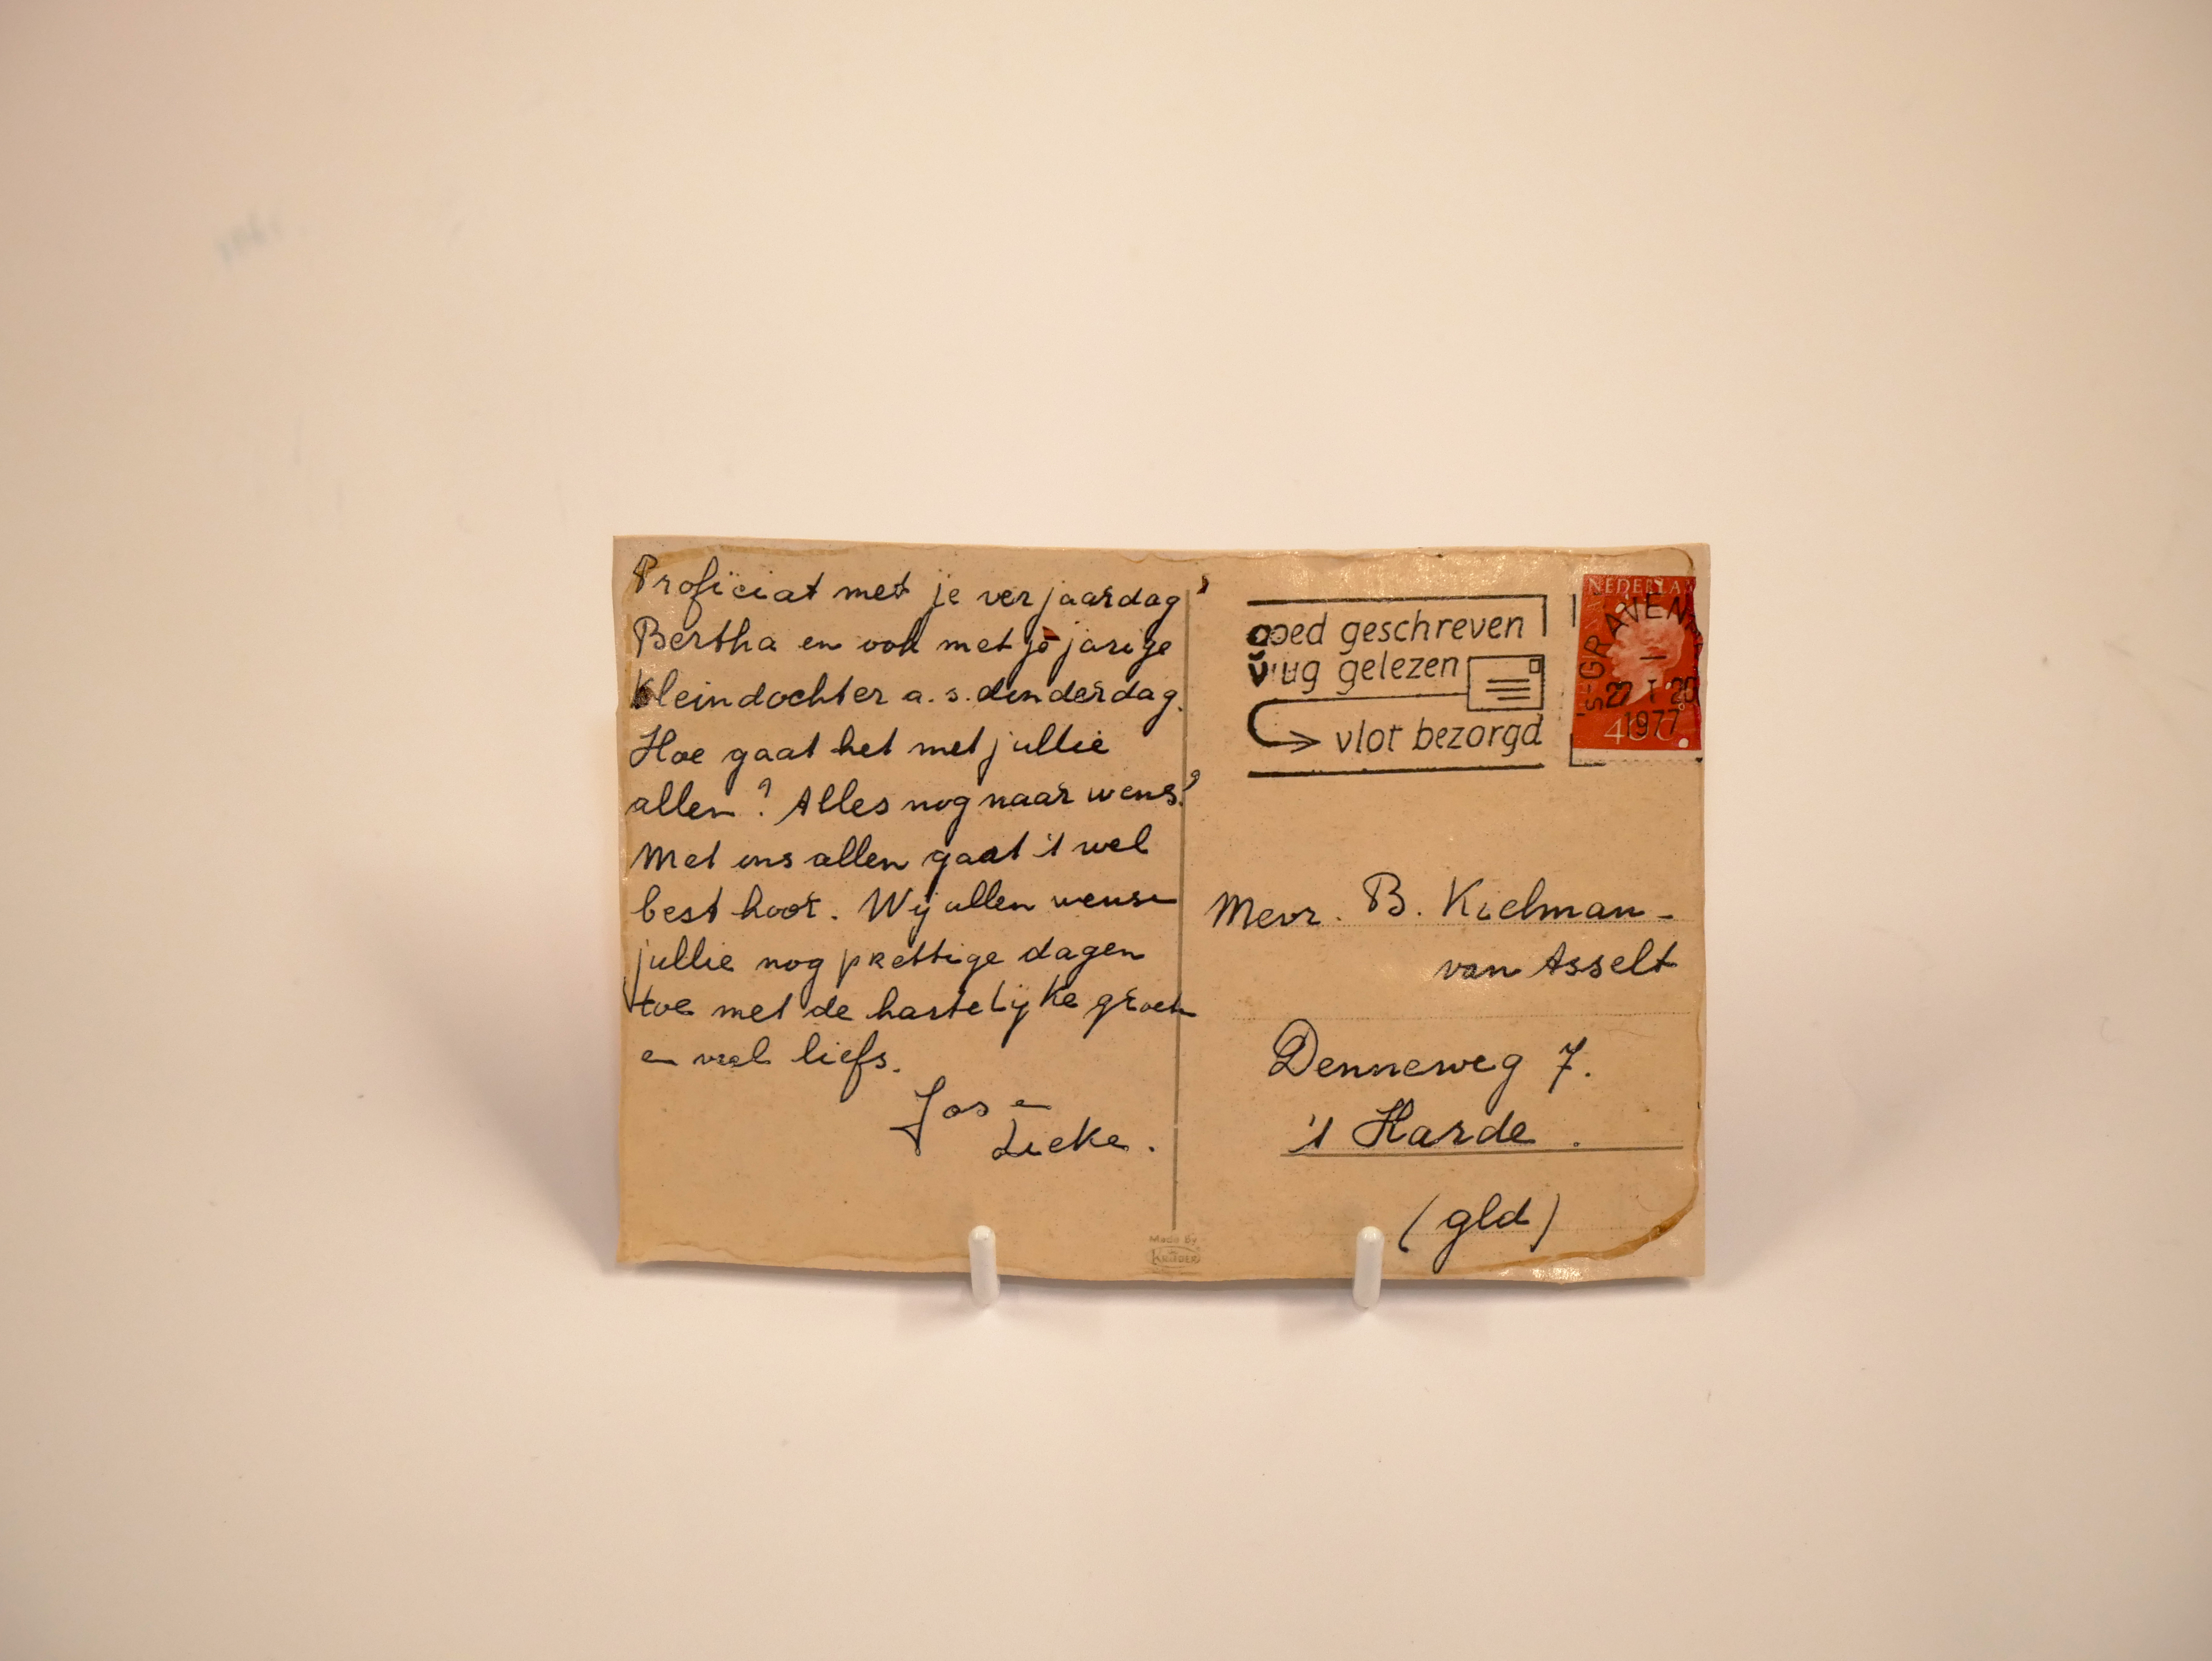 Proficiat met je verjaardag
Bertha en ook met je jarige
Kleindochter a.s. donderdag.
Hoe gaat het met jullie
allen? Alles nog naar wens?
Met ons allen gaat 't wel
best hoor. Wij allen wensen
jullie nog prettige dagen
toe met de hartelijke groeten
en veel liefs.
Jos en
Lieke.
goed geschreven
vlug gelezen
vlot bezorgd
NEDERLA
'S-GRAVEN
27 I 20
1977
40c
Mevr. B. Kielman-
van Asselt
Denneweg 7.
't Harde.
(gld)
Made By
KRÜGER